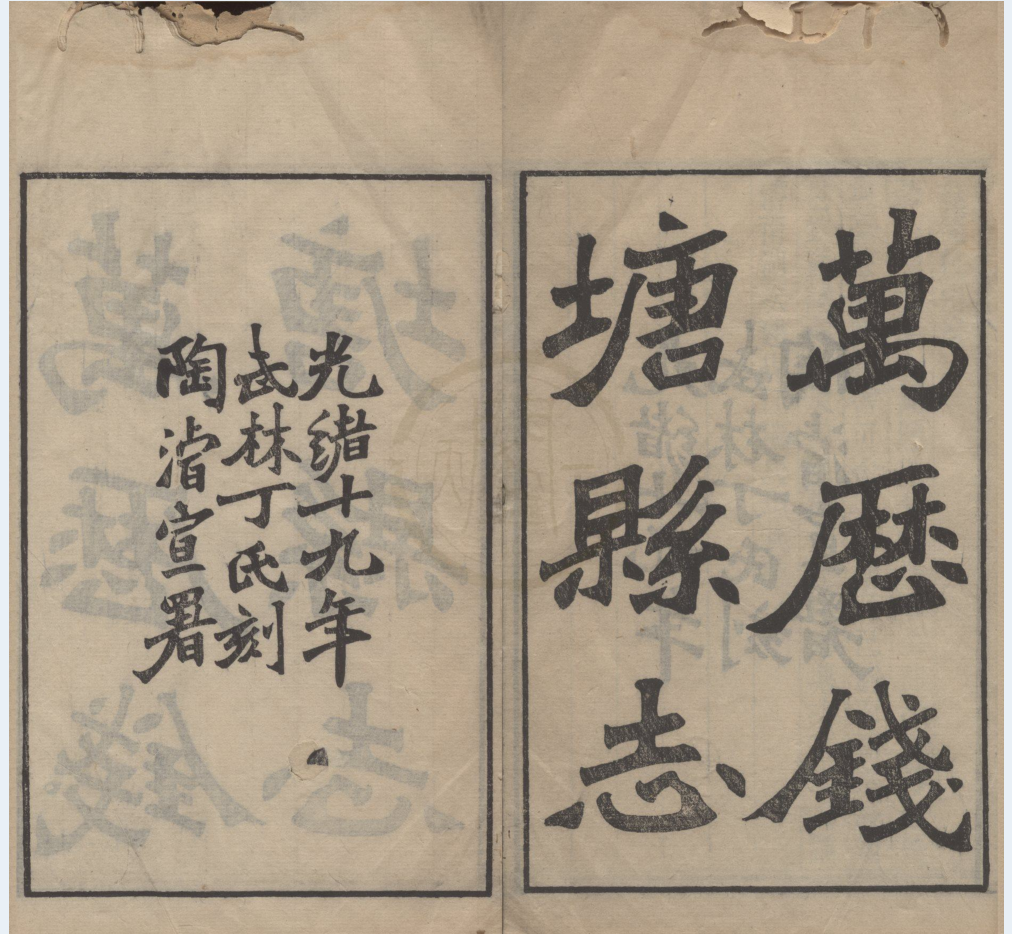 萬厯錢
塘縣志
光緒十九年
武林丁氏刻
陶濬宣署